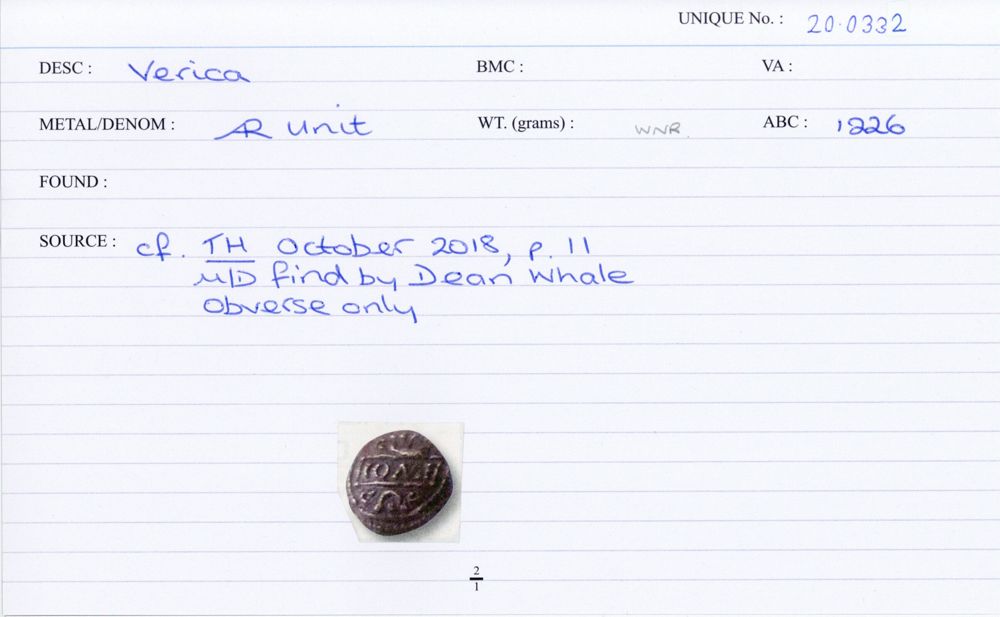 UNIQUE No. : 20.0332
DESC : Verica BMC : VA :
METAL/DENOM : AR unit WT. (grams) : WNR. ABC : 1226
FOUND :
SOURCE : cf. TH October 2018, p. 11
M/D find by Dean Whale
Obverse only
2
1